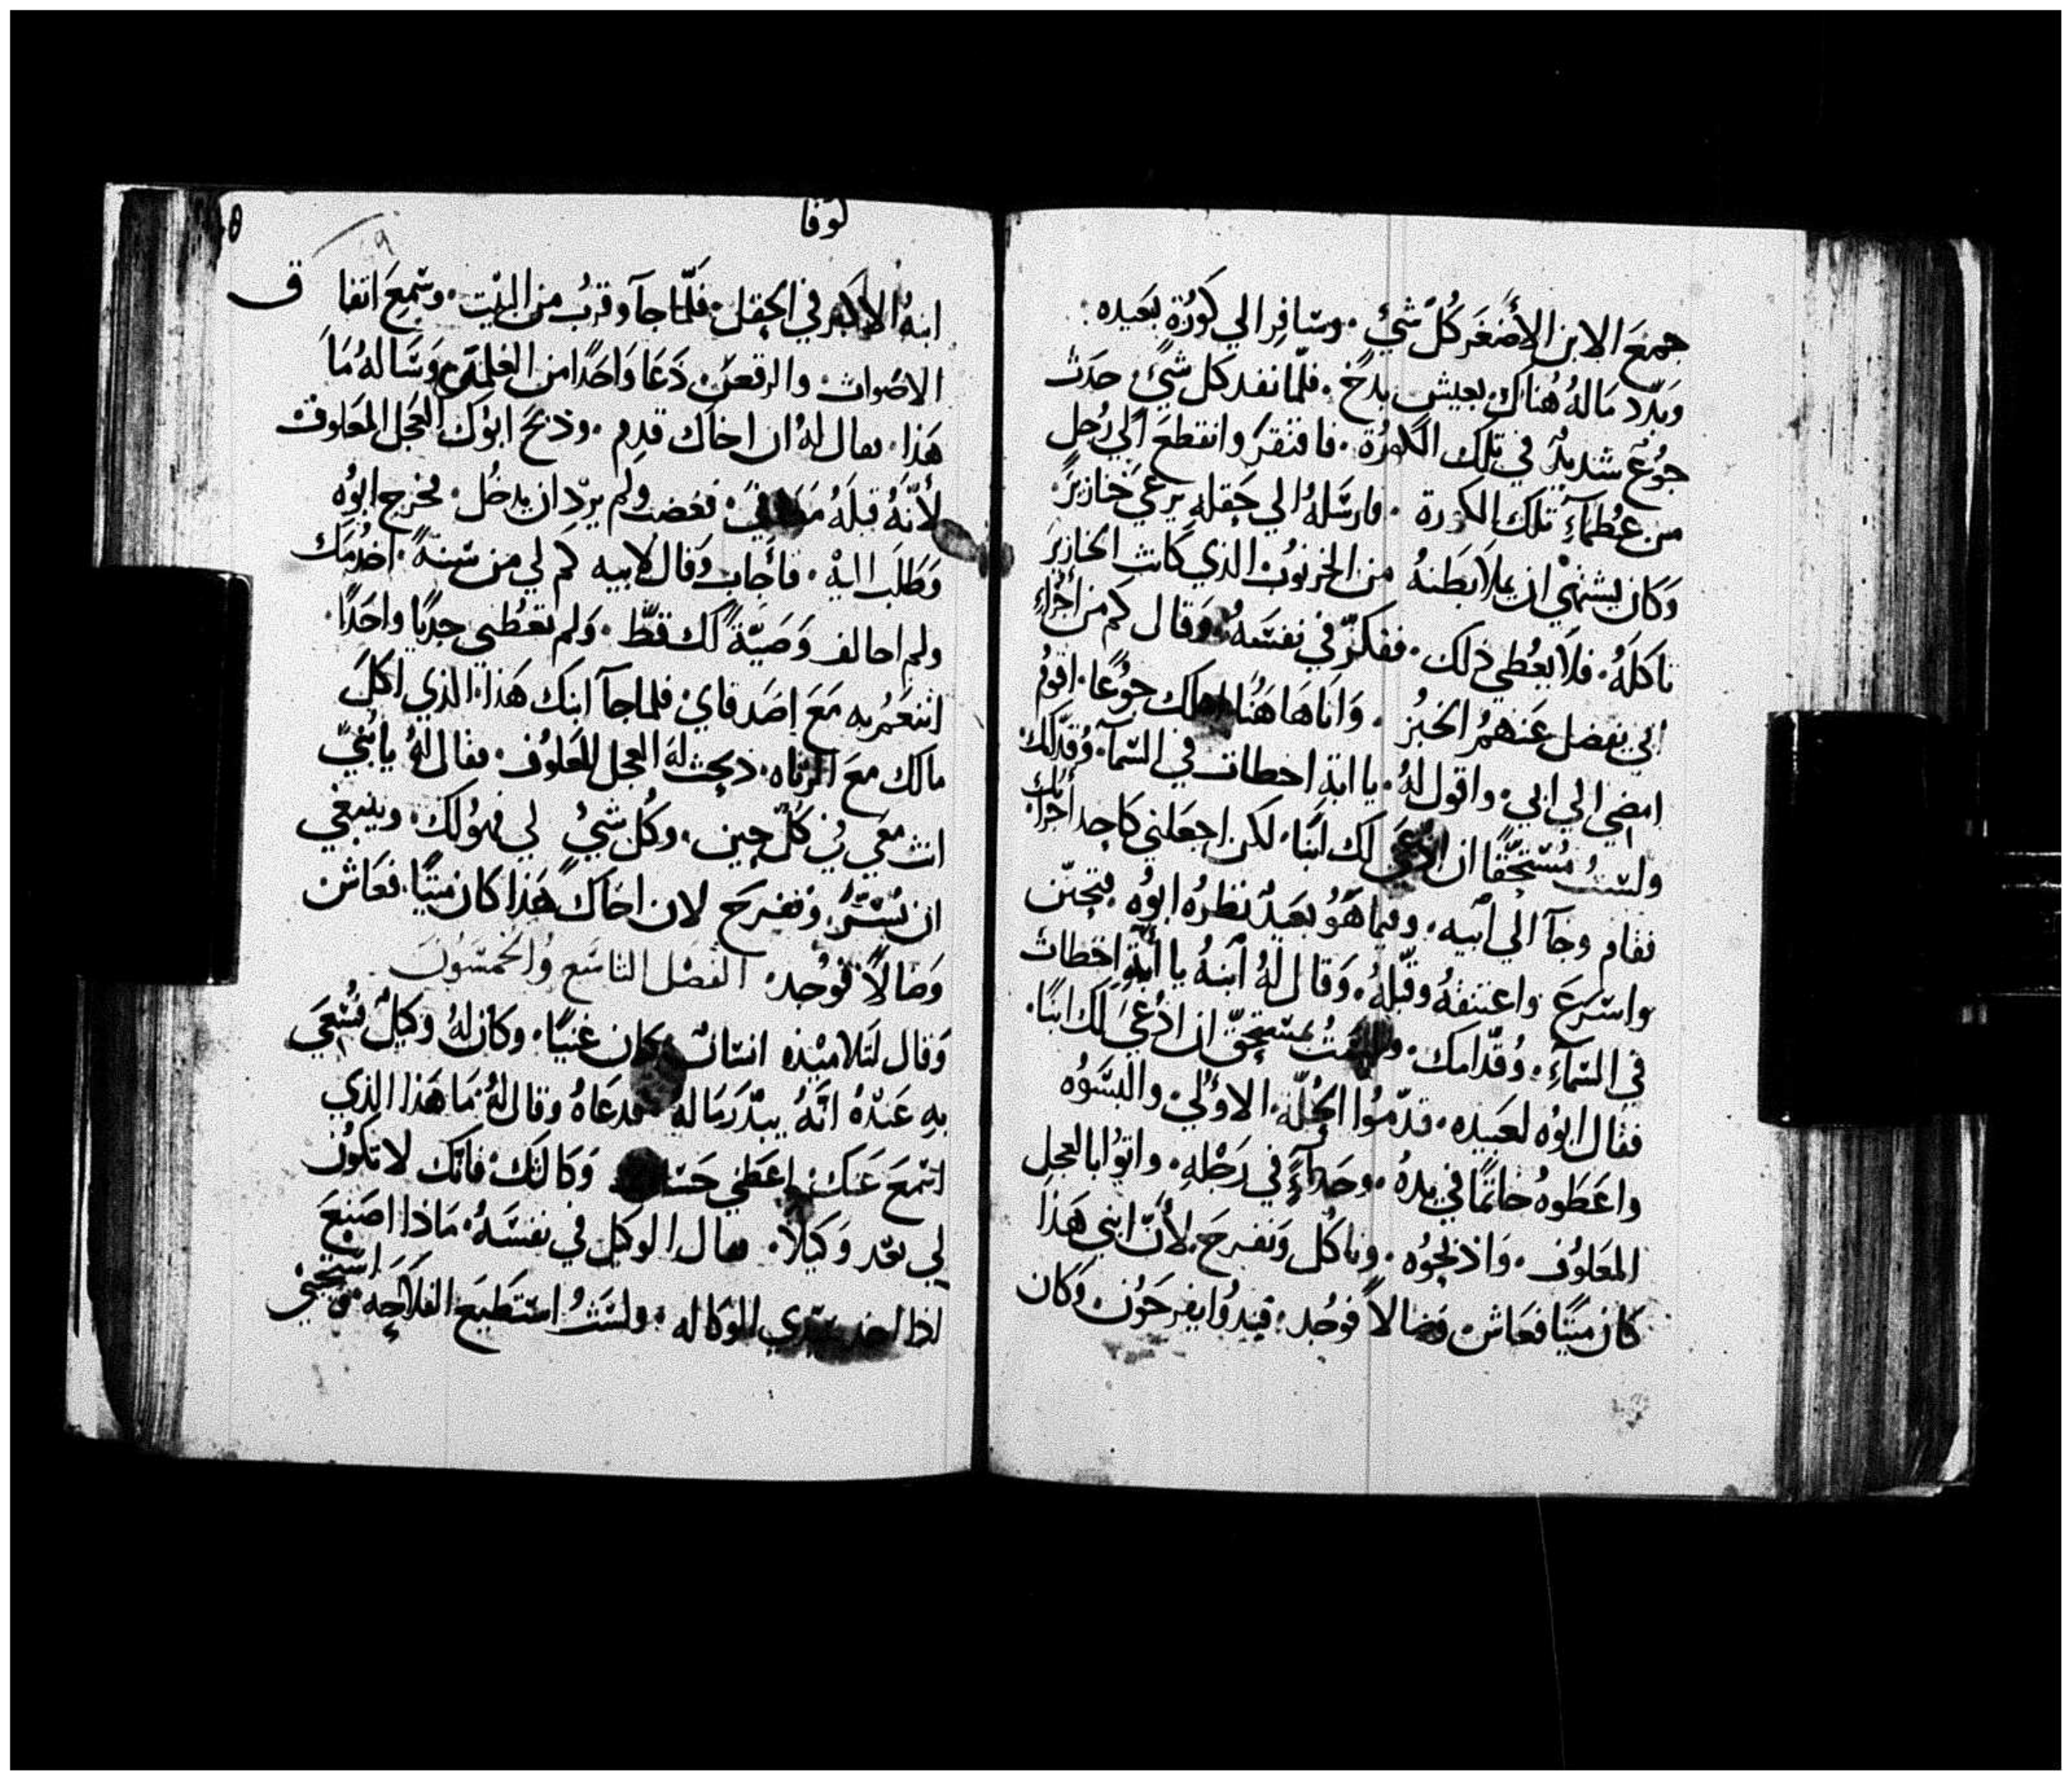 جمَعَ الابن الأَصغَر كُل شَيْءٍ. وسَافِر الي كوُرَة بَعيده.
وَبدّد مَالهُ هُناك بعيشٍ بدَخ. فلمّا نفد كل شَيْءٍ حَدَث
جوُع شديدٌ في تلك الكورَة. فافتقرَ وانقطعَ الي رُجل
من عُظمآءِ تلك الكورة. فارسَلهُ الي حَقله يرعَي خنازيرً.
وَكَان يشتهْي ان يملاَ بَطنهُ من الخرنوُب الذي كَانت الخنازير
تاكلَهُ. فلاَ يعُطي ذلك. ففكرّ في نفسَهُ وَقال كم من أجُرَاءِ
ابي يفضل عَنهمُ الخبُز. وَانَا هَا هَنُا اهلك جوُعًا. اقومُ
امضي الي ابي. واقول لهُ. يا ابة اخطات في السّمآءِ وُقدّامك
ولسَتُ مُسْتحقًّا ان ادعَي لك ابنًا. لكن اجعَلني كاحد اجرَايك
فقام وجآ الي ابيه. وفيما هَوُ بعَيدٌ نظرُه ابوُه فتحنّن
واسرَعَ واعتنقهُ وقبّلهُ. وَقال لهُ ابنهُ يا ابةِ اخطات
في السّمآءِ. وُقدّامك. ولسَتُ بمسَتحقّ ان ادُعَيَ لك ابنًا.
فقال ابوُه لعَبيده. قدّموُا الحُلّة. الاوُلي. والبسَوُه
واعَطوهُ خاتمًا في يدهُ. وحَذآءً في رَجْلهِ. واتوُا بالعجلِ
المَعَلوُف. وَاذبحوُه. وناكُل وَنفرحَ. لأنّ ابني هَذا
كان ميتًا فعَاش. وَضالاً فوُجد. فبدوُا يفرحَوُن وَكان
لوقا
ابنهُ الاكبر في الحقل. فلمّا جآ وقربُ من البيْت. وسَمعَ اتفا ق
الاصْوات والرقصَ. دَعَا وَاحَدًا من الغلمَان وَسَالهُ مَا
هَذا. فقال لهُ ان اخاك قدِم. وذبحَ ابوُك العجل المعَلوف
لأنّهُ قبلهُ مُعَافيَ. فغضب ولم يردِ ان يدخُل. فخرج ابوُه
وَطلَب اليهْ. فأجاب وَقال لابيه كم لي من سَنةً. اخدُمَك
ولم اخالف وَصَيّةً لك قطّ. وَلم تعُطني جديًا واحَدًا.
اتنعّمُ به مَعَ اصَدقاي. فلما جآ ابنك هَذا. الذي اكل
مالك مَعَ الزناه. ذبحت لهُ العجل المعَلوُف. فقال لهُ يا بُنيّ
انت معَي في كلّ حين. وكُل شَيْءٍ لي فهوُ لك. وينبغي
ان نُسَرّ. ونفرحَ لان اخَاكَ هَذا كان ميتًا. فعَاش
وَضالاً فوُجد. الفصْل التاسَع وُالخمسَوُنَ
وَقال لتَلاميْذه انسَان كان غنيًا. وكان لهُ وكيلٌ فسُعَي
بهِ عَندهُ انّهُ يبدّر مَاله. فدعَاهُ وقال لهُ. مَا هَذا الذي
اسْمعَ عَنكَ. اعَطني حَسَاب وَكالتك. فانّك لا تكوُن
لي بَعّد وَكيلاً. فقال الوكيل في نفسَهُ. مَاذا اصنعَ
وَلستُ استَطيعَ الفلاَحَه. وَاستحي